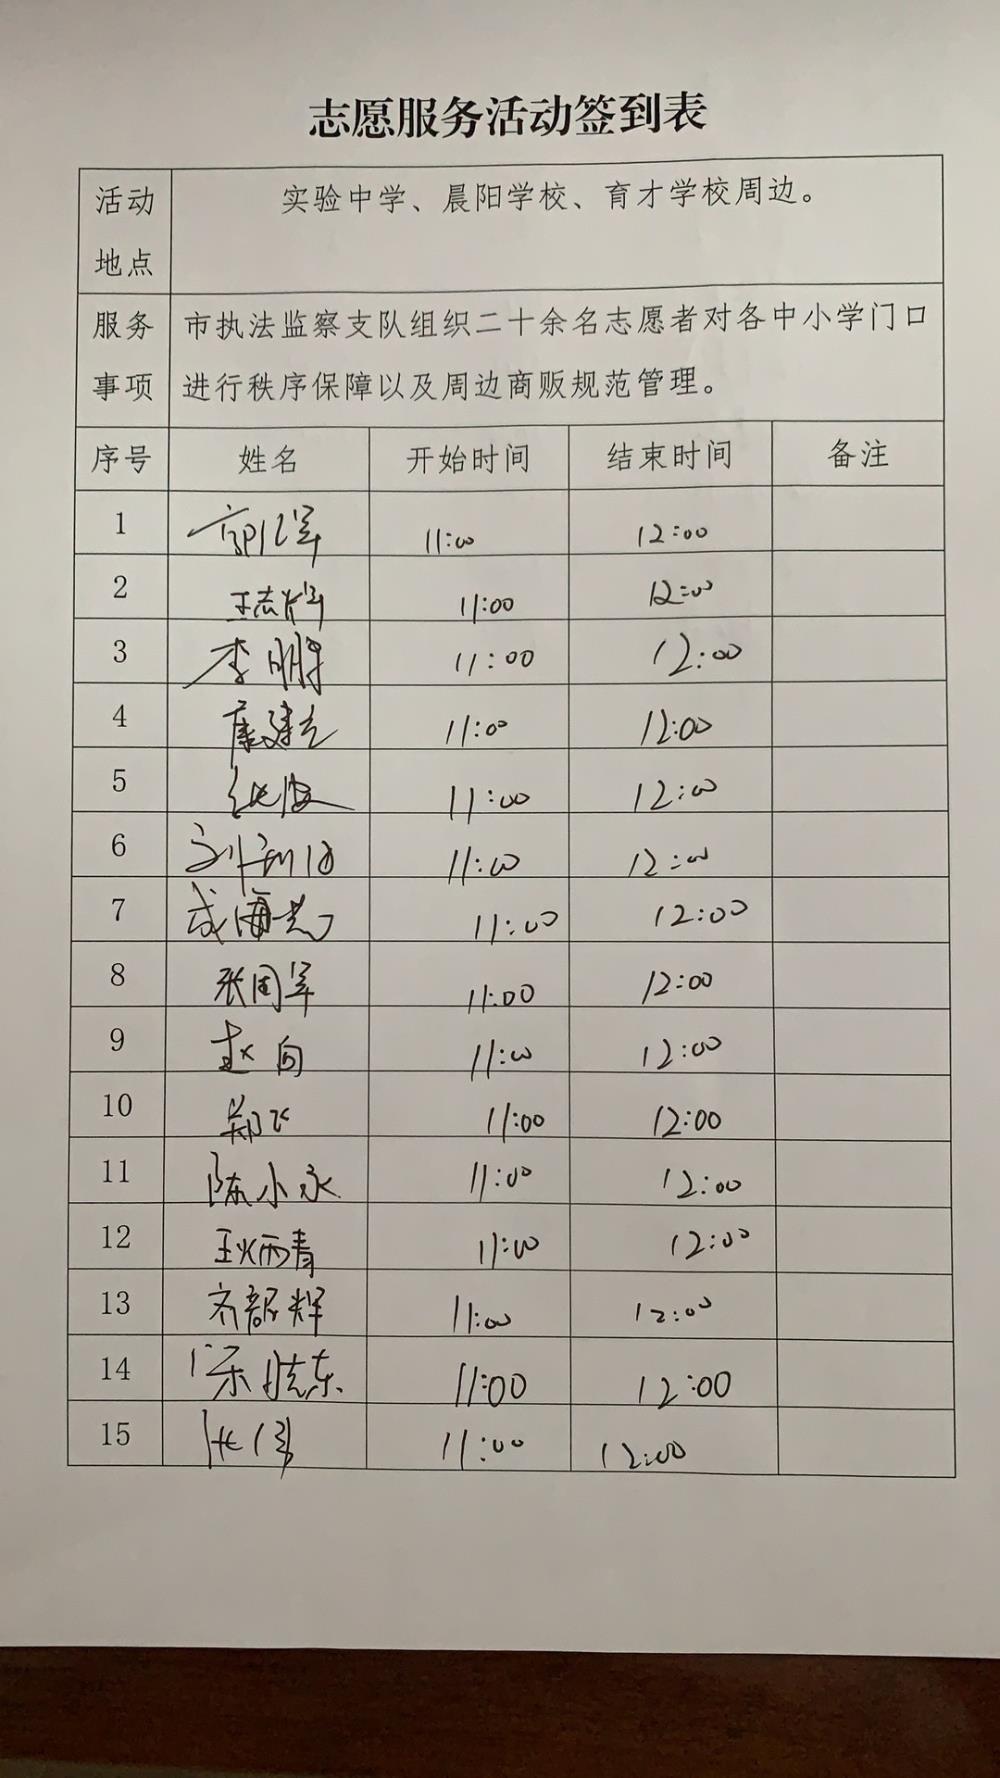 志愿服务活动签到表
活动地点 实验中学、晨阳学校、育才学校周边。
服务事项 市执法监察支队组织二十余名志愿者对各中小学门口
进行秩序保障以及周边商贩规范管理。
序号 姓名 开始时间 结束时间 备注
1 11:00 12:00
2 11:00 12:00
3 11:00 12:00
4 11:00 12:00
5 11:00 12:00
6 11:00 12:00
7 11:00 12:00
8 张国军 11:00 12:00
9 赵向 11:00 12:00
10 郑飞 11:00 12:00
11 陈小永 11:00 12:00
12 11:00 12:00
13 齐韶辉 11:00 12:00
14 11:00 12:00
15 11:00 12:00